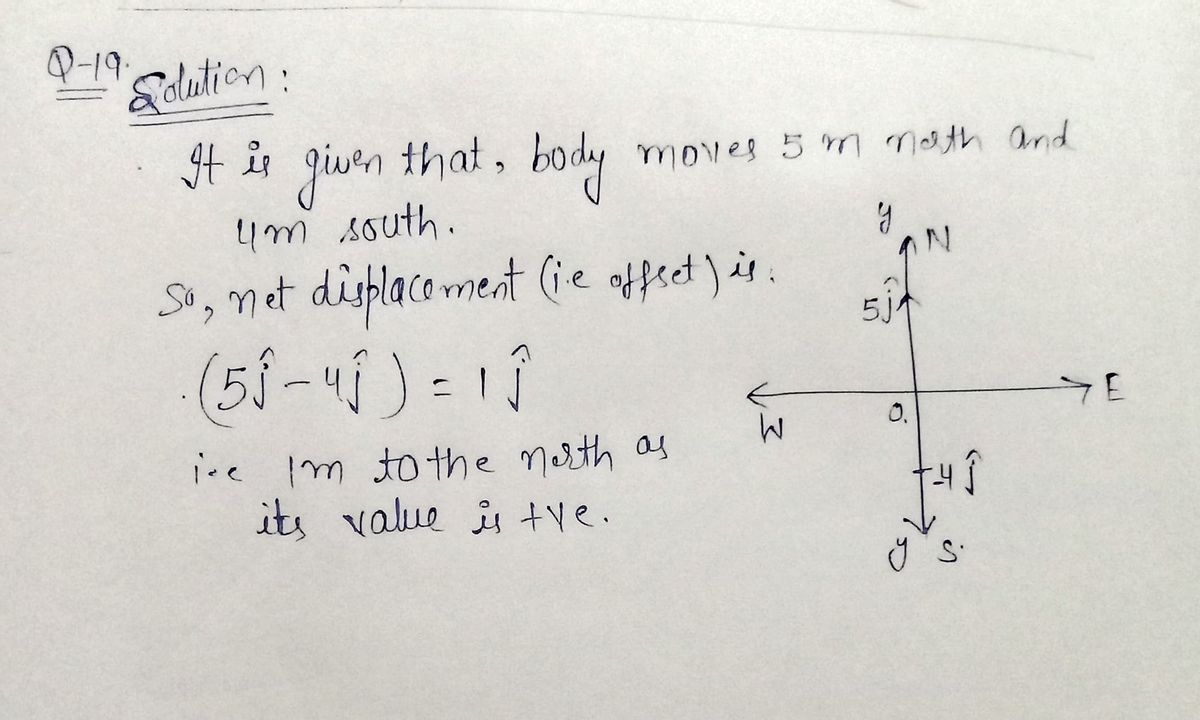 Q-19.
Solution:
It is given that, body moves 5 m north and
4m south.
So, net displacement (i.e offset) is:
(5ĵ - 4ĵ) = 1ĵ
i.e 1m to the north as
its value is +ve.
y N
5ĵ
W O. E
-4ĵ
y S.